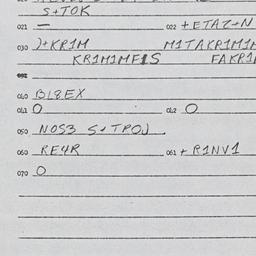 S+TOK
021 — 022 +ETAZ+N
030 )+KR1M M1TAKR1M1M
KR1M1MF1S FAKR1
040 BL8EX
041 O 042 O
050 NOS3 S+TPOJ
060 RE4R 061 +R1NV1
070 O